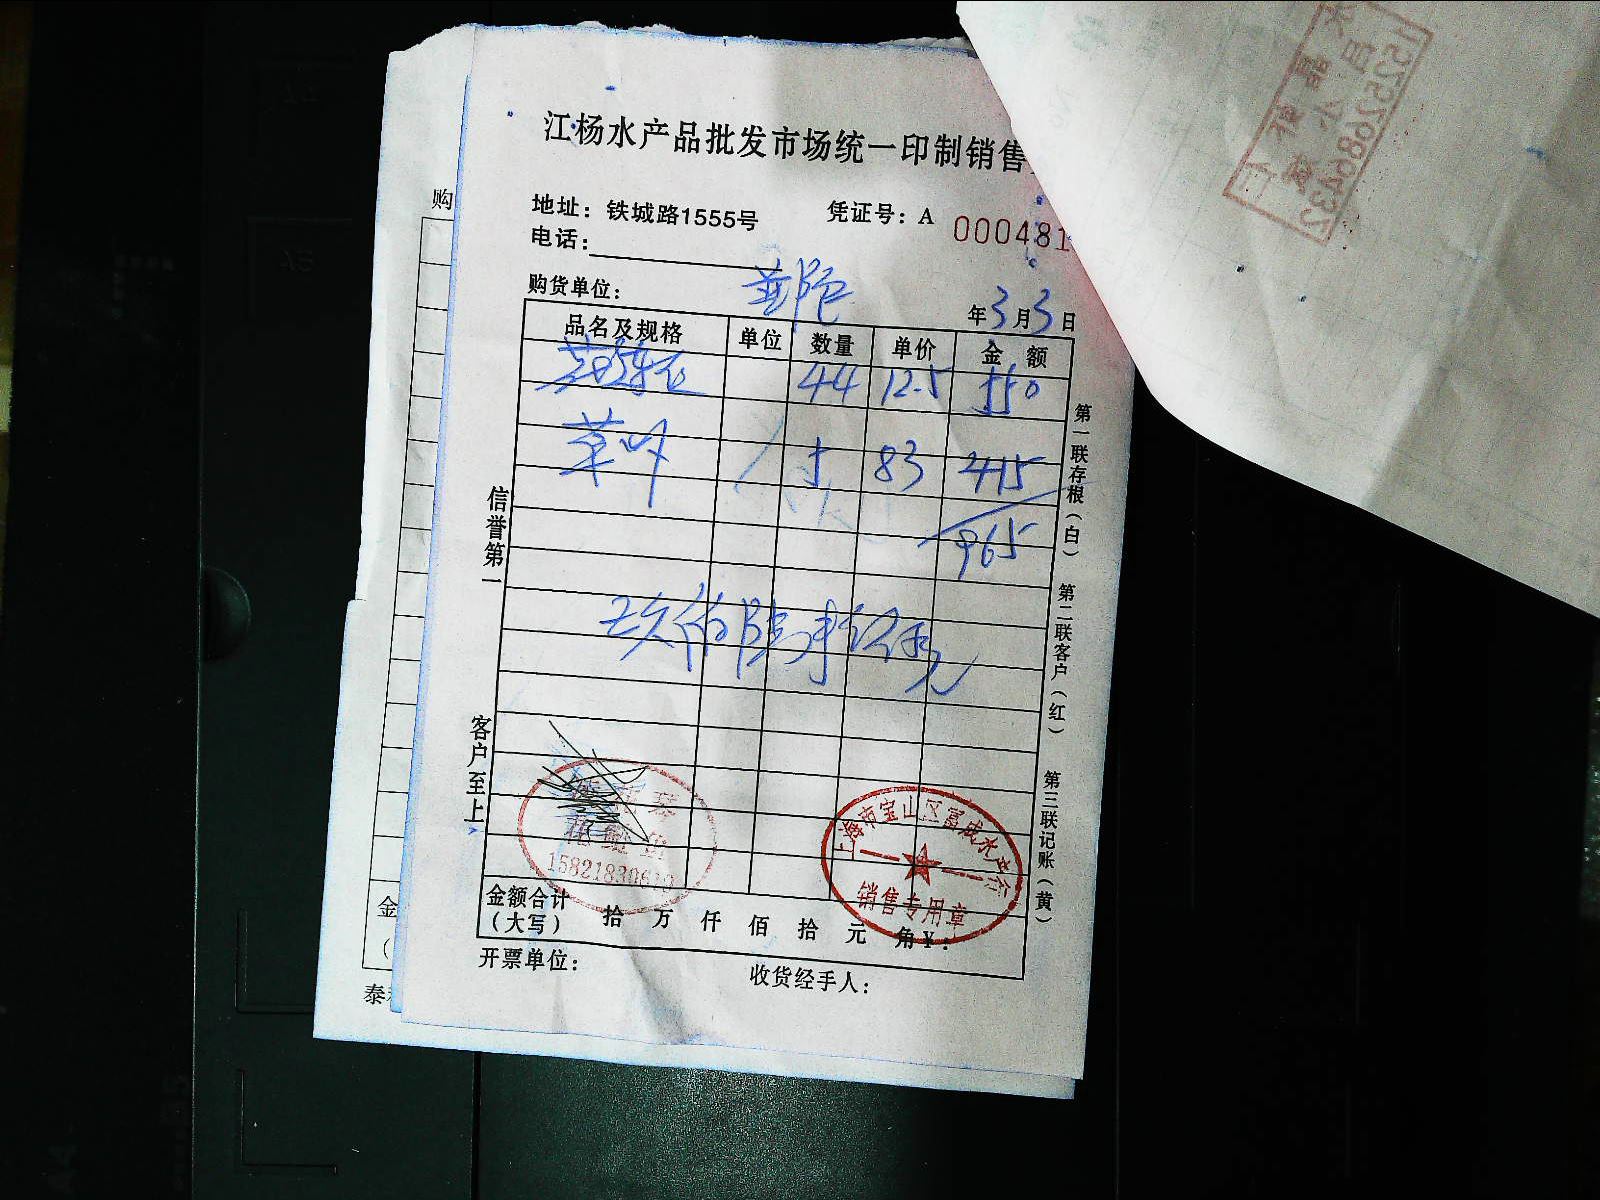 江杨水产品批发市场统一印制销售
地址：铁城路1555号
凭证号：A 000481
电话：
购货单位：
年3月3日
品名及规格 单位 数量 单价 金额
44 12.5 550
草虾 5 83 415
965
玖佰陆拾伍元
信誉第一
客户至上
第一联存根（白） 第二联客户（红） 第三联记账（黄）
15821830610
上海市宝山区富成水产行
销售专用章
金额合计
（大写） 拾 万 仟 佰 拾 元 角 ¥：
开票单位：
收货经手人：
购
金
（
泰
15252686432